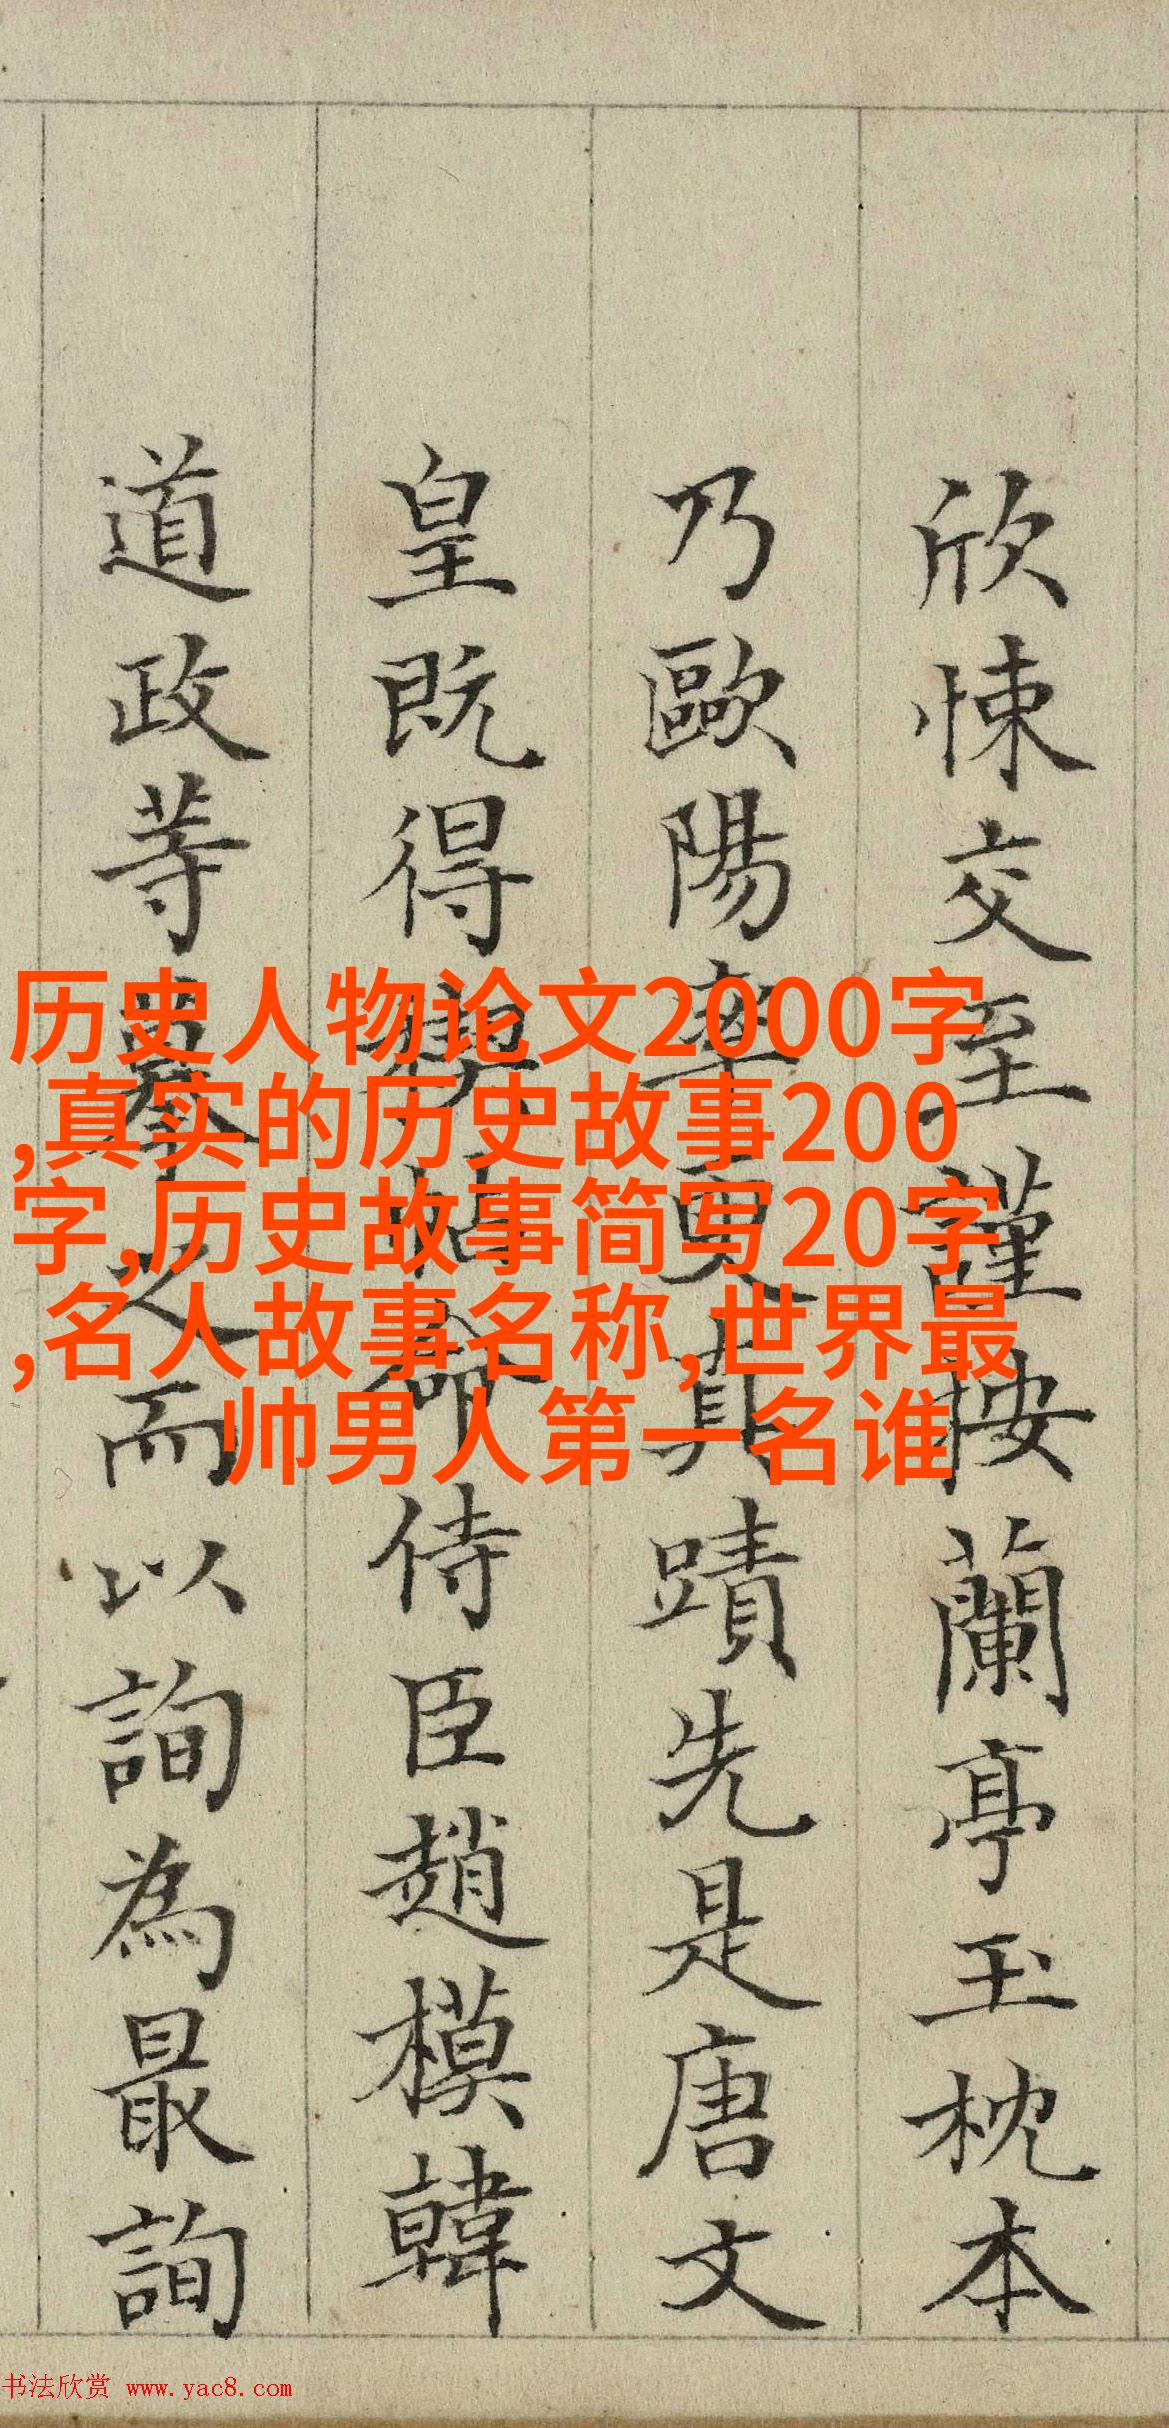 欣悚交至謹按蘭亭玉枕本
乃歐陽率更真蹟先是唐文
皇既得禊帖命侍臣趙模韓
道政等摹之而以詢為最詢
历史人物论文2000字
,真实的历史故事200
字,历史故事简写20字
,名人故事名称,世界最
帅男人第一名谁
书法欣赏 www.yac8.com